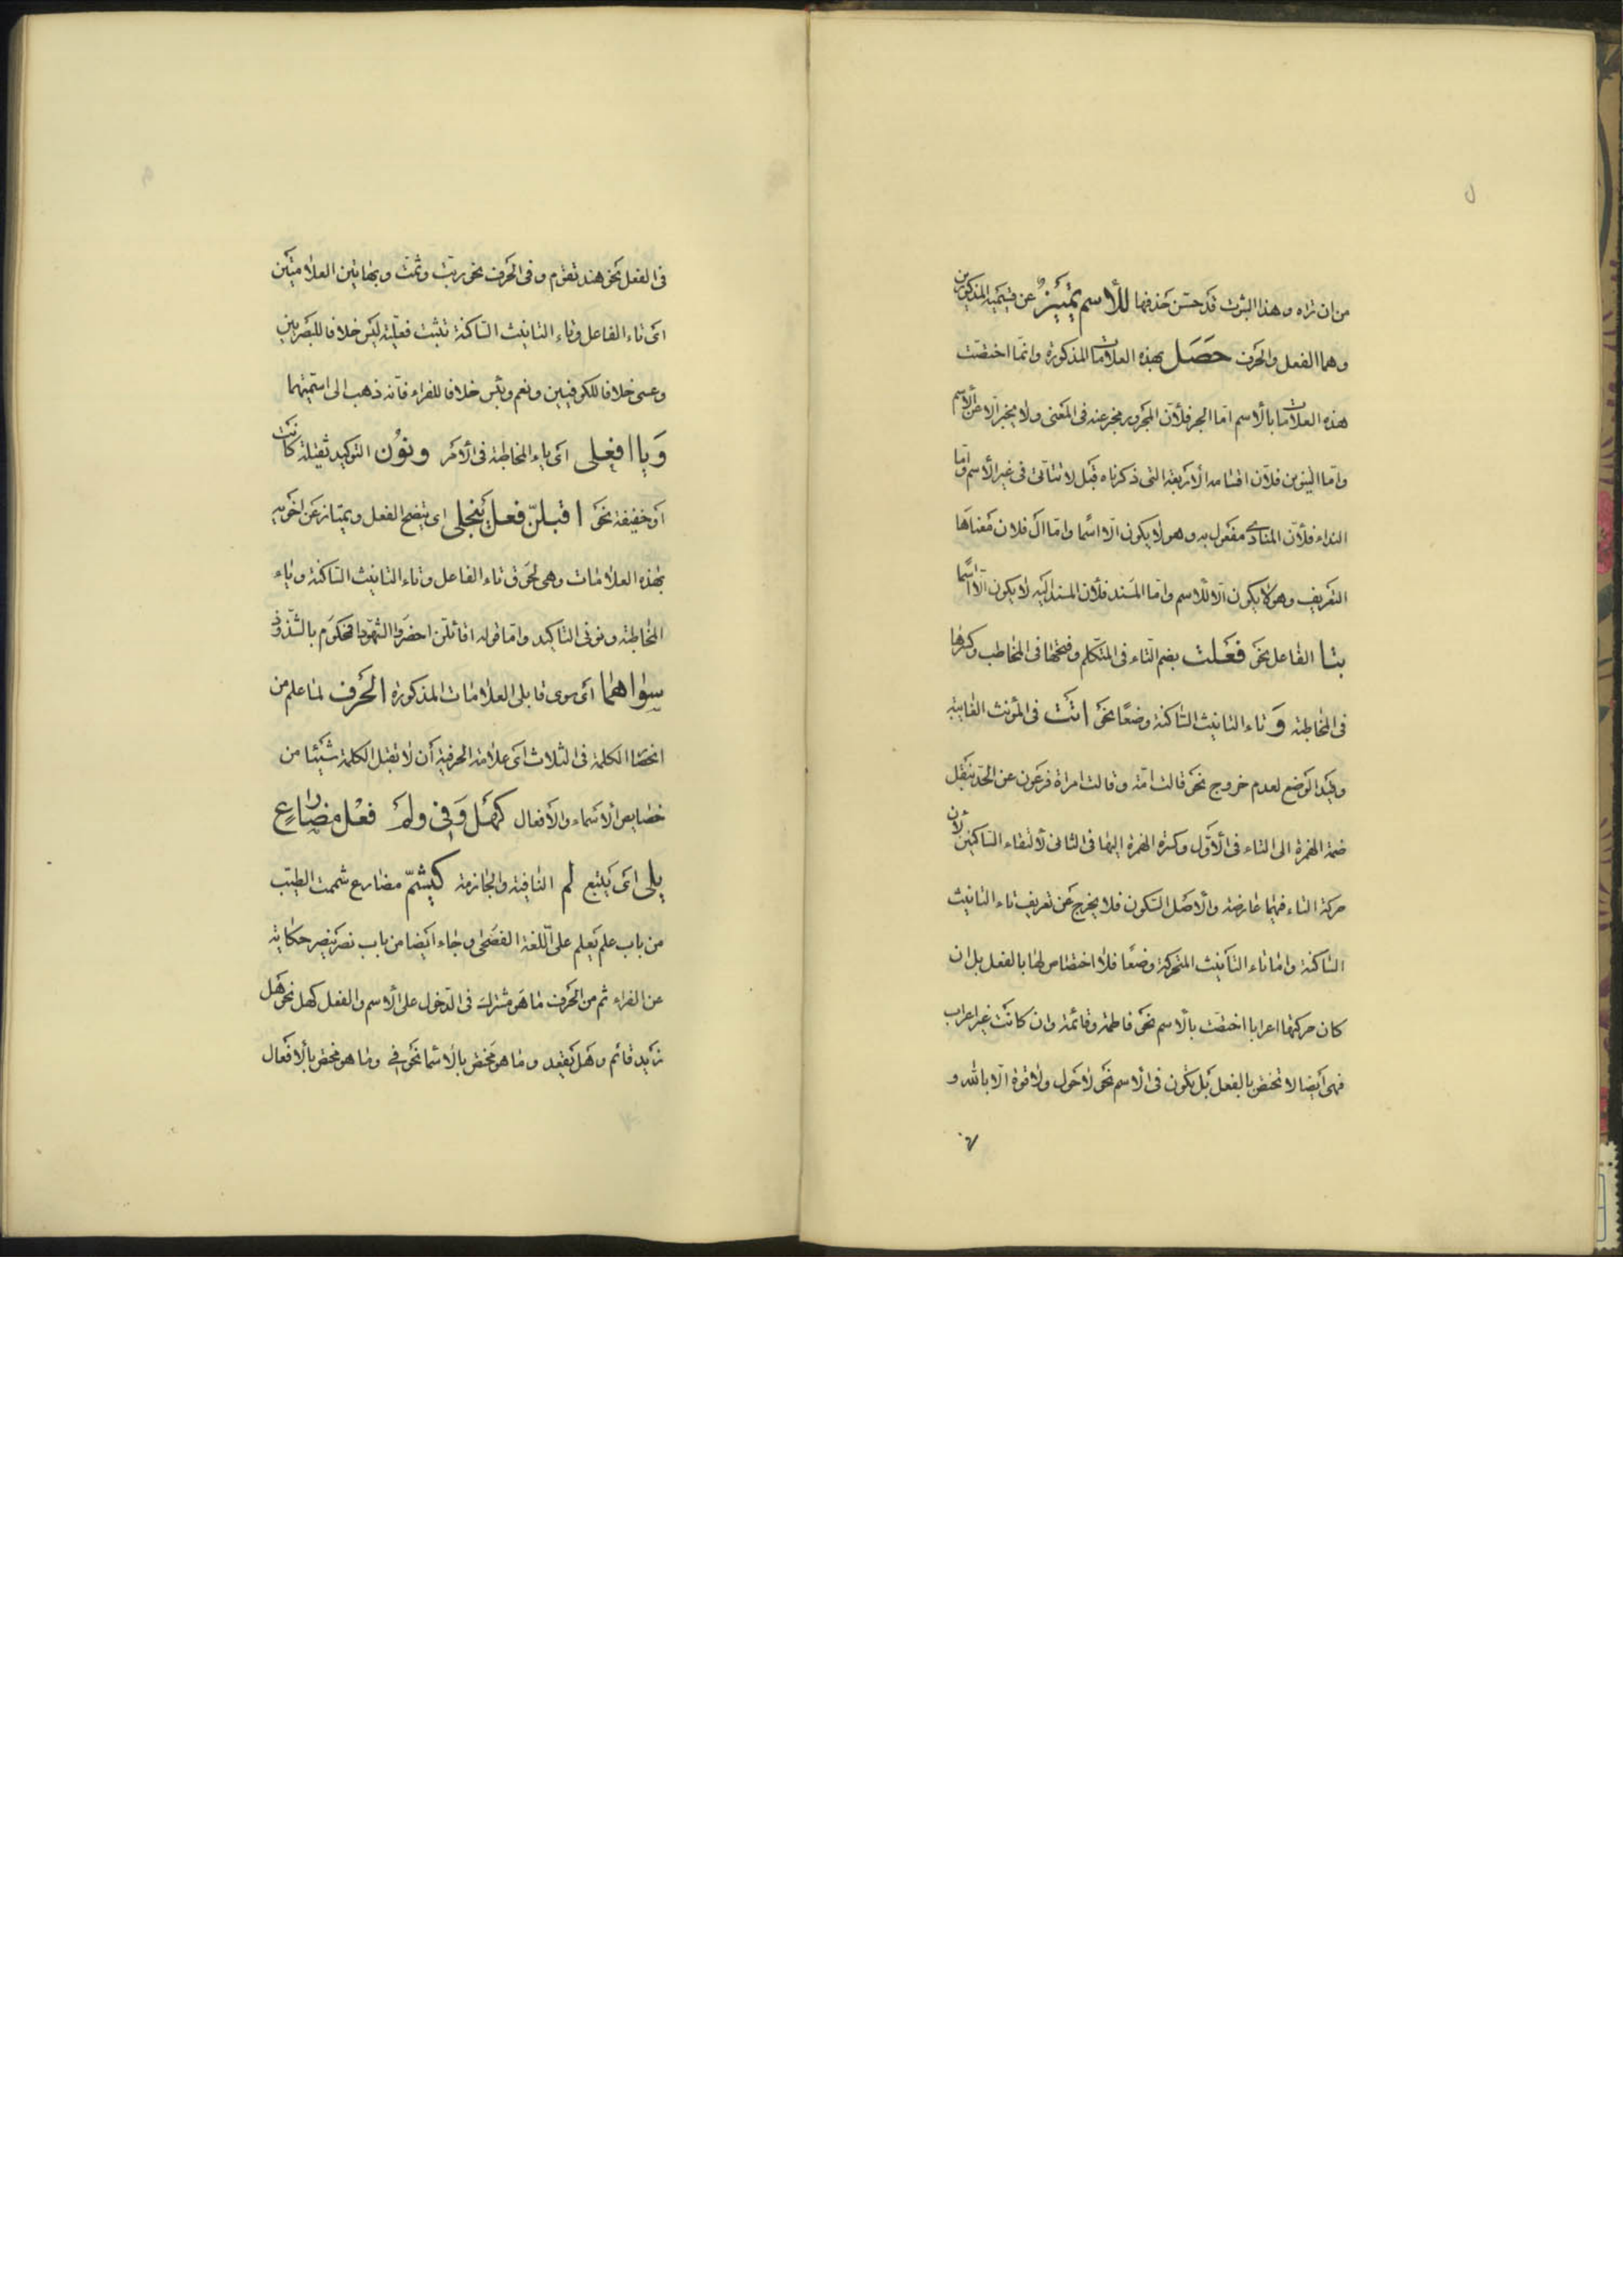 من ان تراه وهذا الثبوت قد حسّن حذفها للأسم تمييزٌ عن قسيميه المذكورين
وهما الفعل والحرف حَصَل بهذه العلامات المذكورة وانّما اختصّت
هذه العلامات بالأسم امّا الجر فلأنّ المجرور مخبر عنه فى المعنى ولا يخبر الّا عن الأسم
وامّا التنوين فلأنّ اقسامه الأربعة التى ذكرناه قبل لا تتأتى فى غير الأسم وامّا
النداء فلأنّ المنادى مفعول به وهو لا يكون الّا اسمًا وامّا ال فلان معناها
التعريف وهو لا يكون الّا للاسم وامّا المسند فلأن المسند اليه لا يكون الّا اسمًا
بتا الفاعل نحو فعلت بضم التاء فى المتكلم وفتحها فى المخاطب وكسرها
فى المخاطبة وَ تاء التانيث الساكنة وضعًا نحو اتت فى المؤنث الغايبة
وقيد الوضع لعدم خروج نحو قالت امّة وقالت امراة فرعون عن الحدّ بنقل
ضمة الهمزة الى التاء فى الأوّل وكسرة الهمزة اليها فى الثانى لألتقاء الساكنين لأن
حركة التاء فيهما عارضة والأصل السكون فلا يخرج عن تعريف تاء التانيث
الساكنة وامّا تاء التأنيث المتحركة وضعًا فلا اختصاص لها بالفعل بل ان
كان حركتها اعرابا اختصّت بالأسم نحو فاطمة وقائمة وان كانت غير اعراب
فهى أيضا لا تختص بالفعل بل يكون فى الأسم نحو لا حول ولا قوة الّا بالله و
فى الفعل نحو هند تقوم وفى الحرف نحو ربّت وثمّت وبهاتين العلامتين
اى تاء الفاعل وتاء التانيث الساكنة تثبت فعليّة ليس خلافا للبصريين
وعسى خلافا للكوفيين ونعم وبئس خلافا للفراء فانّه ذهب الى اسميتهما
وَيا افعلى اى ياء المخاطبة فى الأمر ونوُن التوكيد ثقيلة كانت
أو خفيفة نحو اقبلنّ فعل ينجلى اى يتضح الفعل ويمتاز عن اخويه
بهذه العلامات وهى لحوق تاء الفاعل وتاء التانيث الساكنة وياء
المخاطبة ونونى التاكيد وامّا قوله اقائلنّ احضروا الشهودا فمحكوم بالشذوذ
سواهما اى سوى قابلى العلامات المذكورة الحرف لما علم من
انحصار الكلمة فى الثلاث اى علامة الحرفية أن لا تقبل الكلمة شيئا من
خصايص الأسماء والأفعال كهل وَفى ولم فعل مضارعٍ
يلى اى يتبع لم النافية والجازمة كيشمّ مضارع شممت الطيب
من باب علم يعلم على اللّغة الفصحى وجاء أيضا من باب نصر ينصر حكاية
عن الفراء ثم من الحرف ما هو مشترك فى الدّخول على الأسم والفعل كهل نحو هل
زيد قائم وهل يقعد وما هو مختص بالأسما نحو فى وما هو مختص بالأفعال